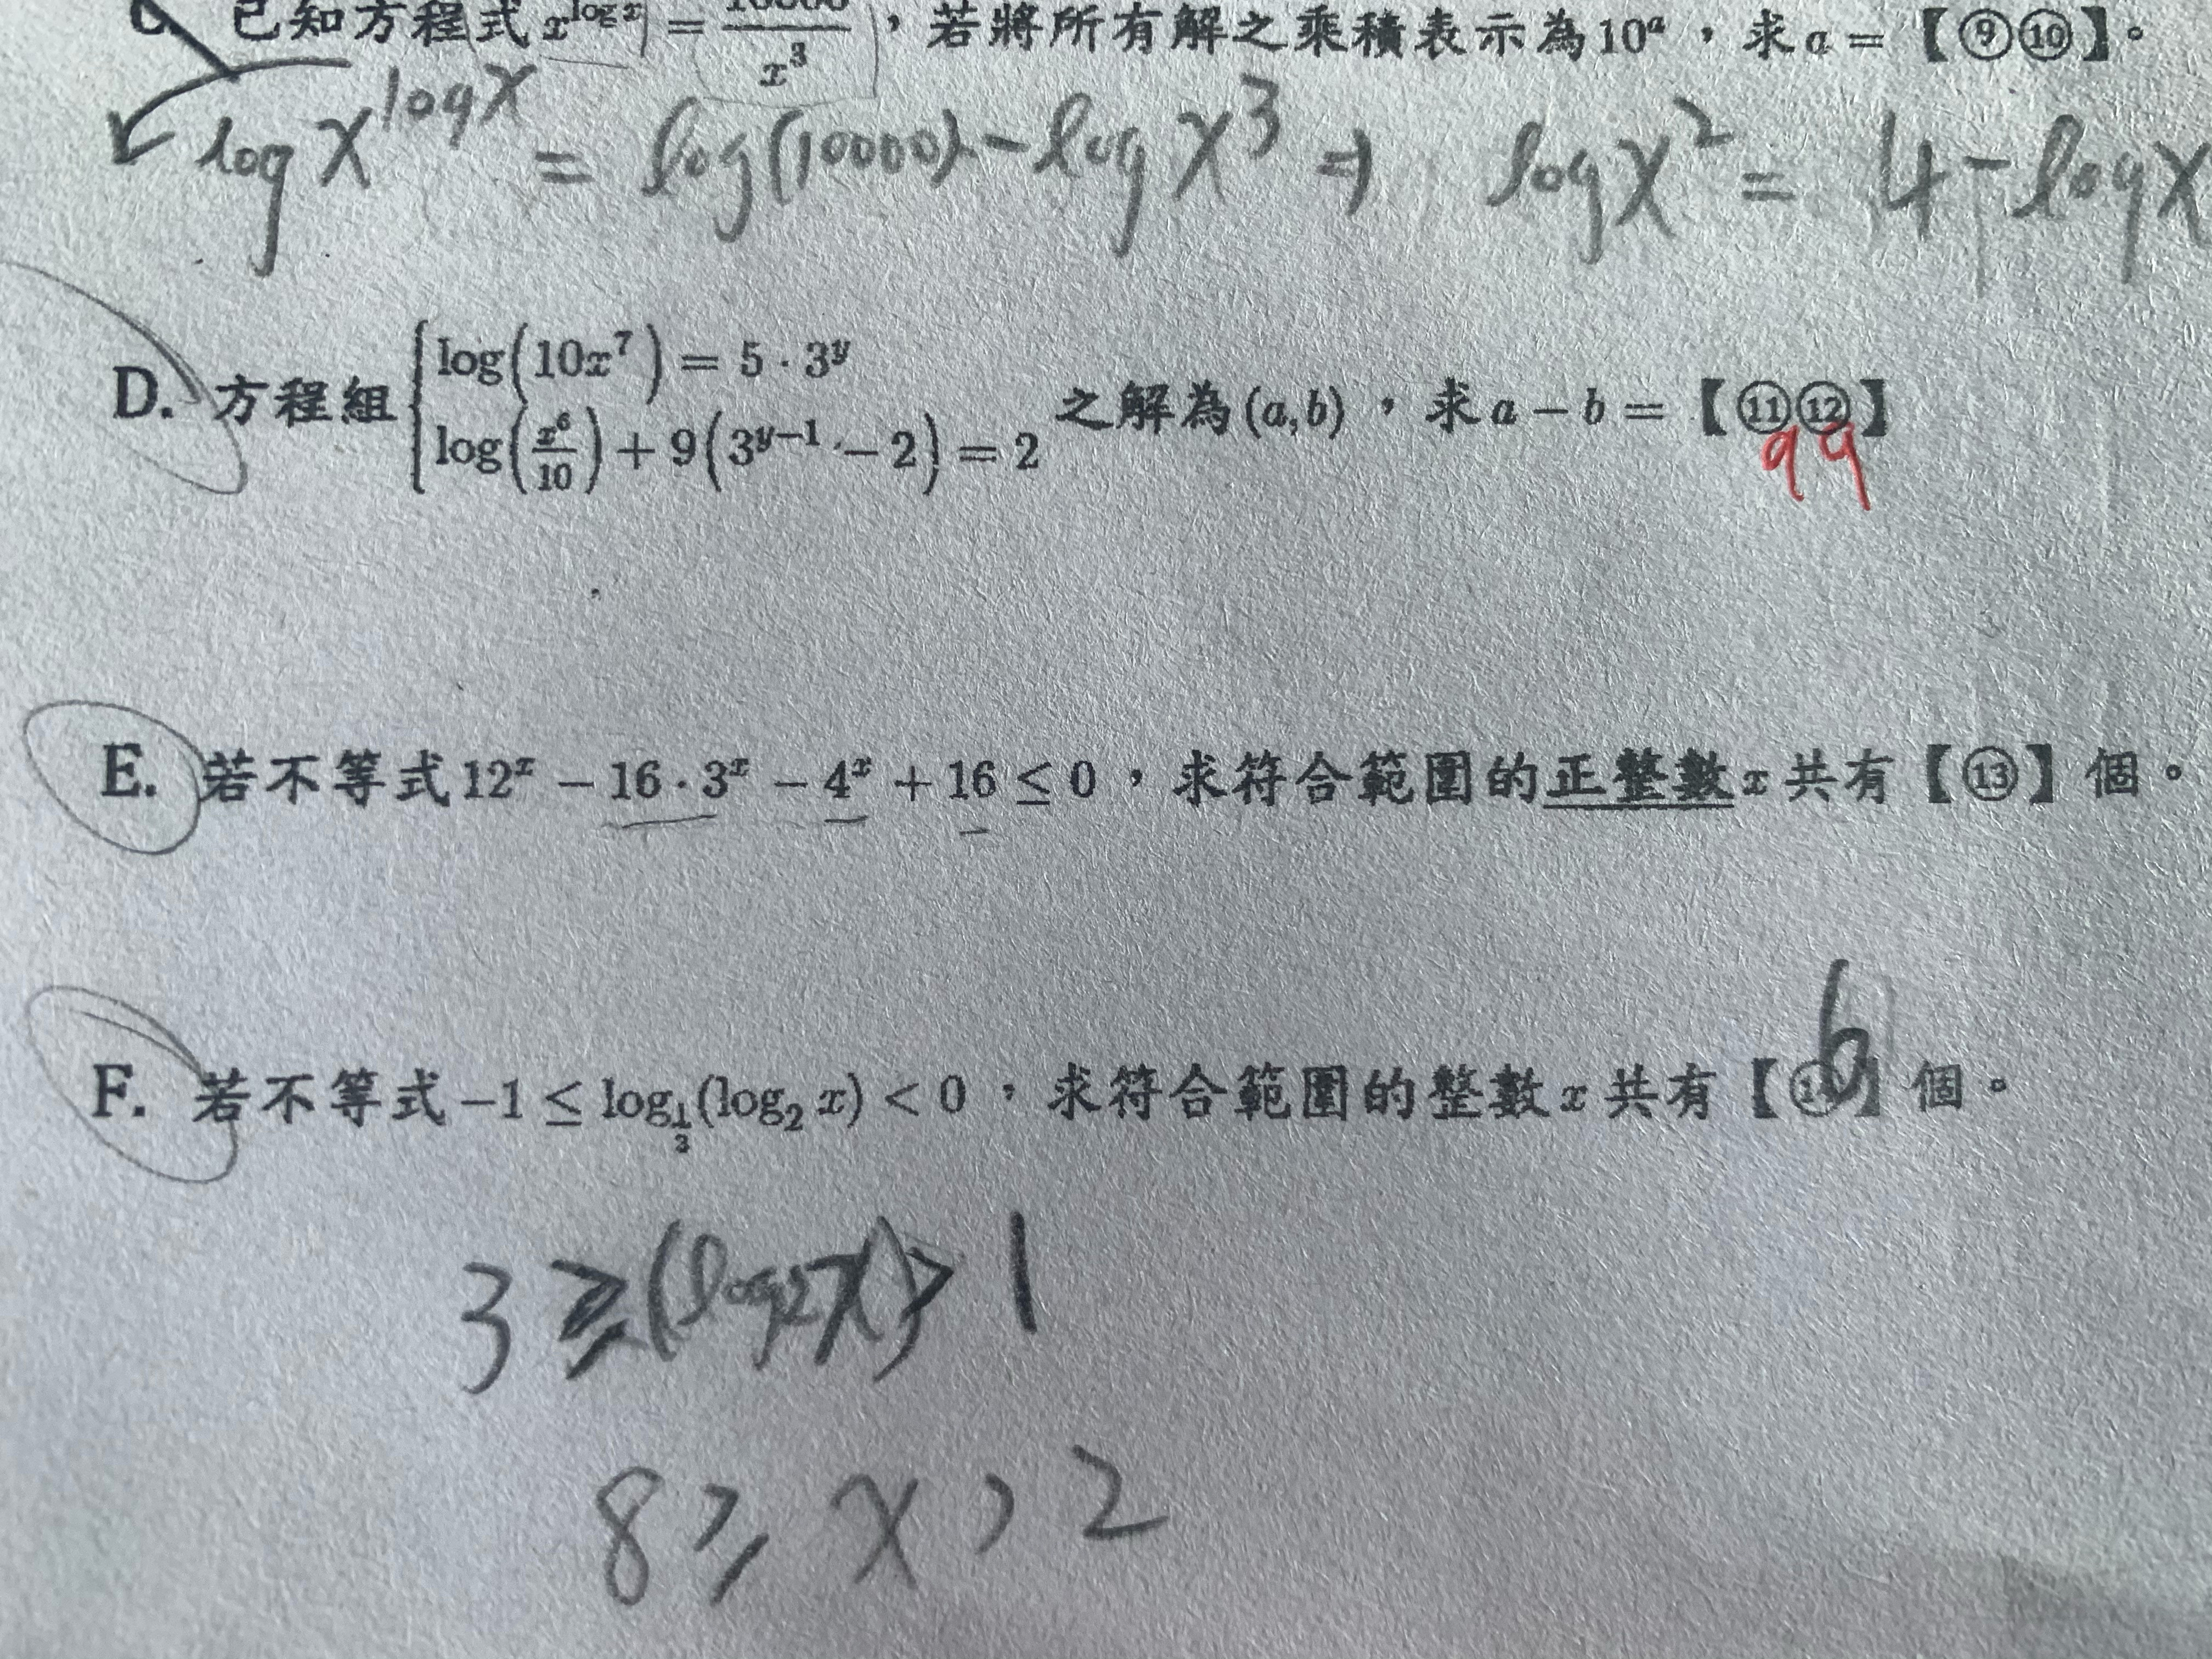 已知方程式 x^{log x} = \frac{10000}{x^3}，若將所有解之乘積表示為10^a，求a =【⑨⑩】。
log x^{log x} = log(10000) - log x^3 ⇒ log x^2 = 4 - log x
D. 方程組 \begin{cases} log(10x^7) = 5 · 3^y \\ log(\frac{x^6}{10}) + 9(3^{y-1} - 2) = 2 \end{cases} 之解為(a,b)，求a − b =【⑪⑫】
99
E. 若不等式12^x − 16 · 3^x − 4^x + 16 ≤ 0，求符合範圍的正整數x共有【⑬】個。
F. 若不等式−1 ≤ log_{\frac{1}{3}}(log_2 x) < 0，求符合範圍的整數x共有【 】個。
6
3 ≥ (log_2 x) > 1
8 ≥ x > 2